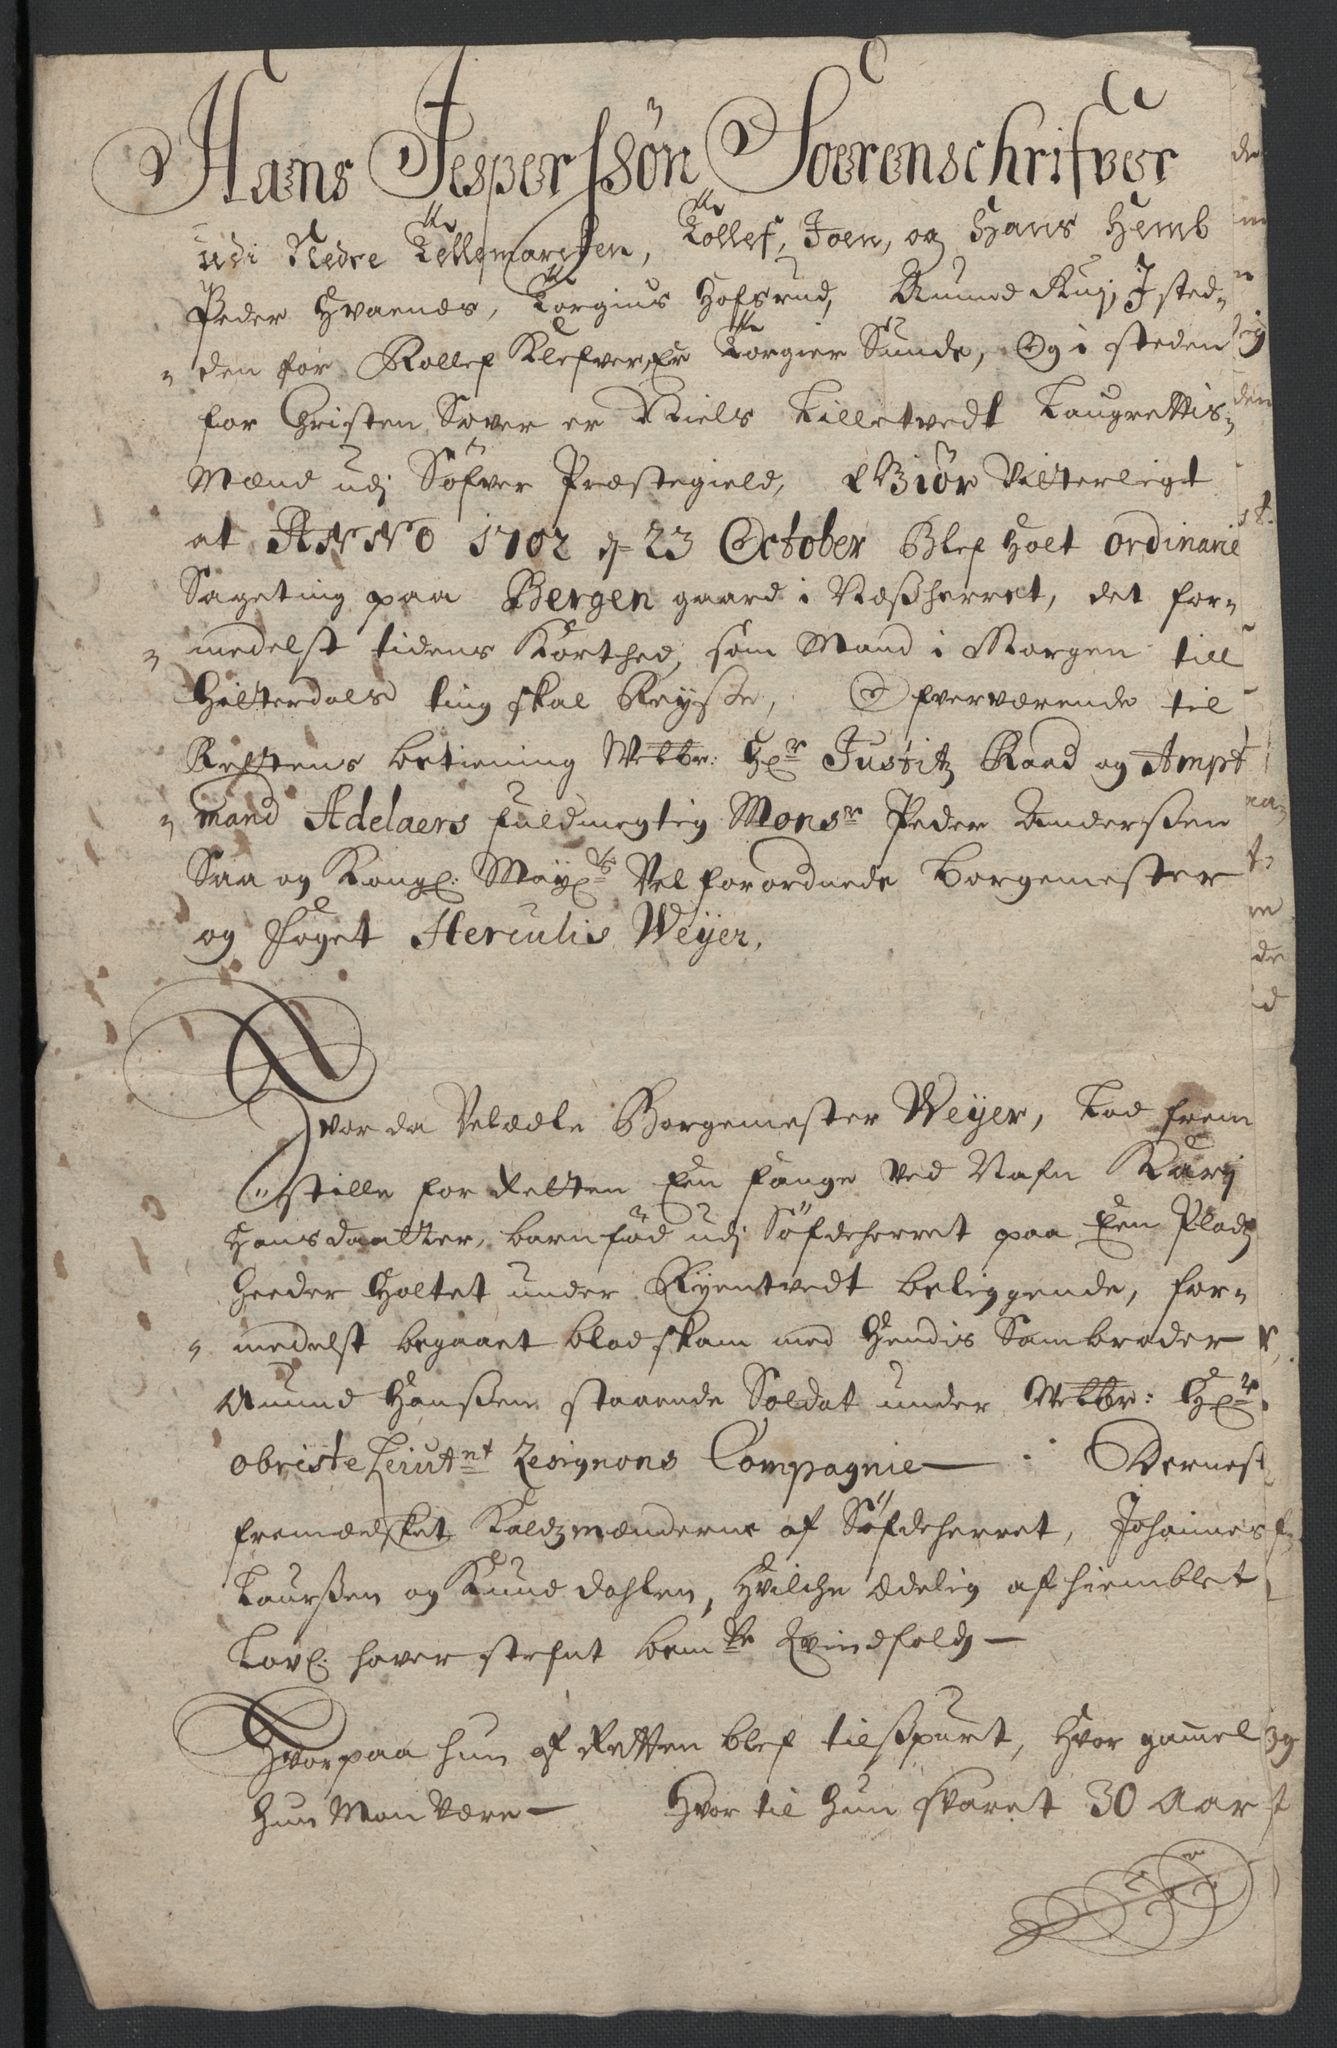 Hans Jesperssøn Soerenschrifver
udi Nedre Tellemarcken, Tollef, Joen, og Hans Hemb
Peder Hvaenes, Torgius Hofsrud, Aumod Ruj, I sted-
den for Rollef Klefver, Er Torgier Sunde, Og i steden
for Christen Sover er Niels Lilletvedt Laugrettis-
Mænd udj Söfver Præstegield, Giör Vitterligt
at ANNO 1702 d= 23 October Blef Holt ordinarie
Sageting paa Bergen gaard i Næßherret, det for-
medelst tidens Korthed, som Mand i Morgen till
Hitterdals ting skal Reyße, Ofverværende til
Rettens betiening Welbr: Hr Justitz Raad og Ampt
mand Adelaers fuldmegtig Monsr Peder Anderßen
Saa og Kongl: Mayts Vel forordnede Borgemester
og Foget Herculis Weyer,
Hvor da Velædle Borgemester Weyer, Lod frem
stille for Retten Een fange ved Nafn Karj
Hansdaatter, barnfød udj Söfdeherret paa Een Pladz
heeder Holtet under Ryentvedt beliggende, for-
medelst begaaet blodskam med Hendis Sambroder
Aumund Hanßen staaende Soldat under Welbr: Hr
obriste Leiutnt Zesignons Compagnie — Dernest
fremædsket Kaldzmænderne af Söfdeherret, Johannes
Laurßen og Knud Dahlen, Hvilche ædelig afhiemblet
Lovl: hafver stefnt bemte Qvindfolch —
Hvorpaa hun af Retten blef tilßpurt, Hvor gammel
hun Mon Være — Hvor til hun svaret 30 Aar